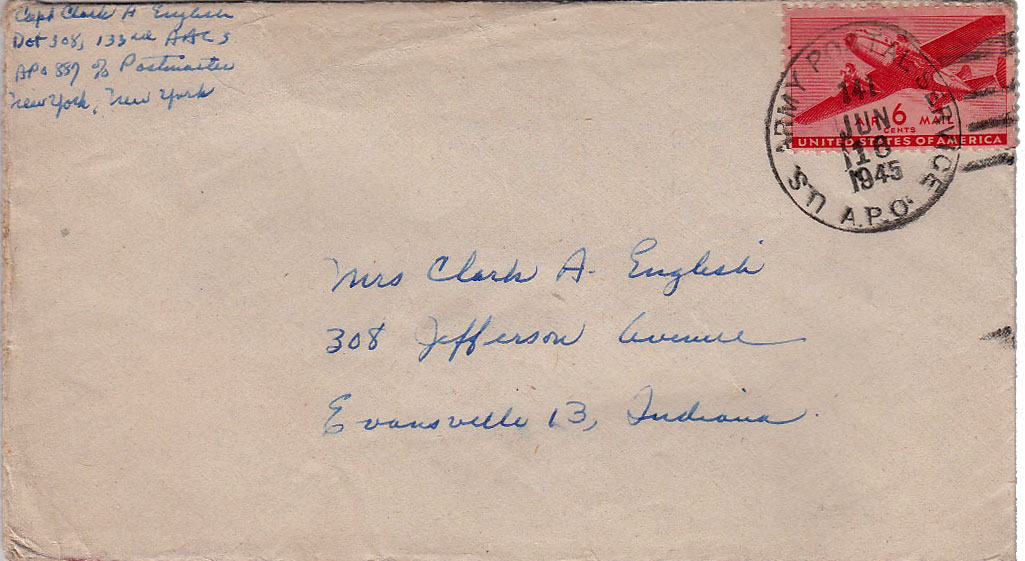 Capt Clark A English
Det 308, 133rd AACS
APO 887 c/o Postmaster
New York, New York
U.S. ARMY POSTAL SERVICE
A.P.O.
JUN
1945
AIR 6 MAIL
CENTS
UNITED STATES OF AMERICA
Mrs Clark A. English
308 Jefferson Avenue
Evansville 13, Indiana